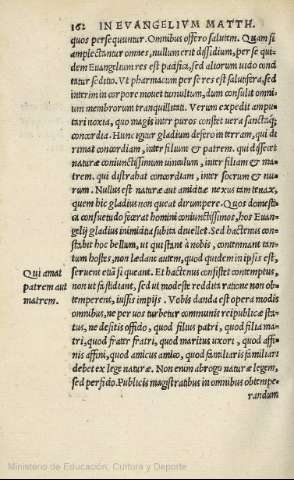 162 IN EVANGELIVM MATTH.
quos persequuntur. Omnibus offero salutem. Quam si
amplectantur omnes, nullum erit dissidium, per se qui-
dem Euangelium res est pacifica, sed aliorum uitio conci
tatur seditio. Vt pharmacum per se res est salutifera, sed
interim in corpore mouet tumultum, dum consulit omni-
um membrorum tranquillitati. Verum expedit ampu-
tari noxia, quo magis inter puros constet uera sanctaq;
concordia. Hunc igitur gladium desero in terram, qui di-
rimat concordiam, inter filium & patrem. qui dissecet
naturæ coniunctissimum uinculum, inter filiam & ma-
trem. qui distrahat concordiam, inter socrum & nu-
rum. Nullus est naturæ aut amicitiæ nexus tam tenax,
quem hic gladius non queat dirumpere. Quos domesti-
ca consuetudo fœcerat homini coniunctissimos, hos Euan-
gelij gladius inimicitia subita diuellet. Sed hactenus con-
stabit hoc bellum, ut qui stant à nobis, contemnant tan-
tum hostes, non lædant autem, quod quidem in ipsis est,
Qui amat
patrem aut
matrem.
seruent etiā si queant. Et hactenus consistet contemptus,
non ut fastidiant, sed ut modeste reddita ratione non ob-
temperent, iussis impijs. Vobis danda est opera modis
omnibus, ne per uos turbetur communis reipublicæ sta-
tus, ne desitis officio, quod filius patri, quod filia ma-
tri, quod frater fratri, quod maritus uxori, quod affi-
nis affini, quod amicus amico, quod familiaris familiari
debet ex lege naturæ. Non enim abrogo naturæ legem,
sed perficio. Publicis magistratibus in omnibus obtempe-
randum
Ministerio de Educación, Cultura y Deporte